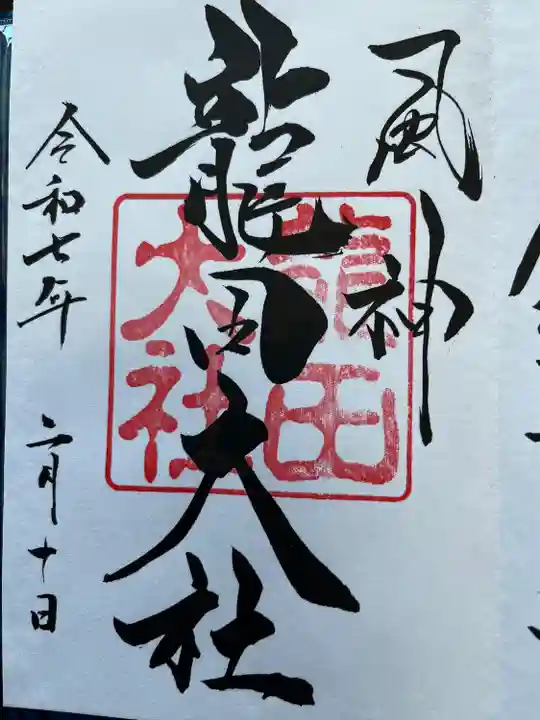 風神
龍田大社
龍田
大社
令和七年 二月十日